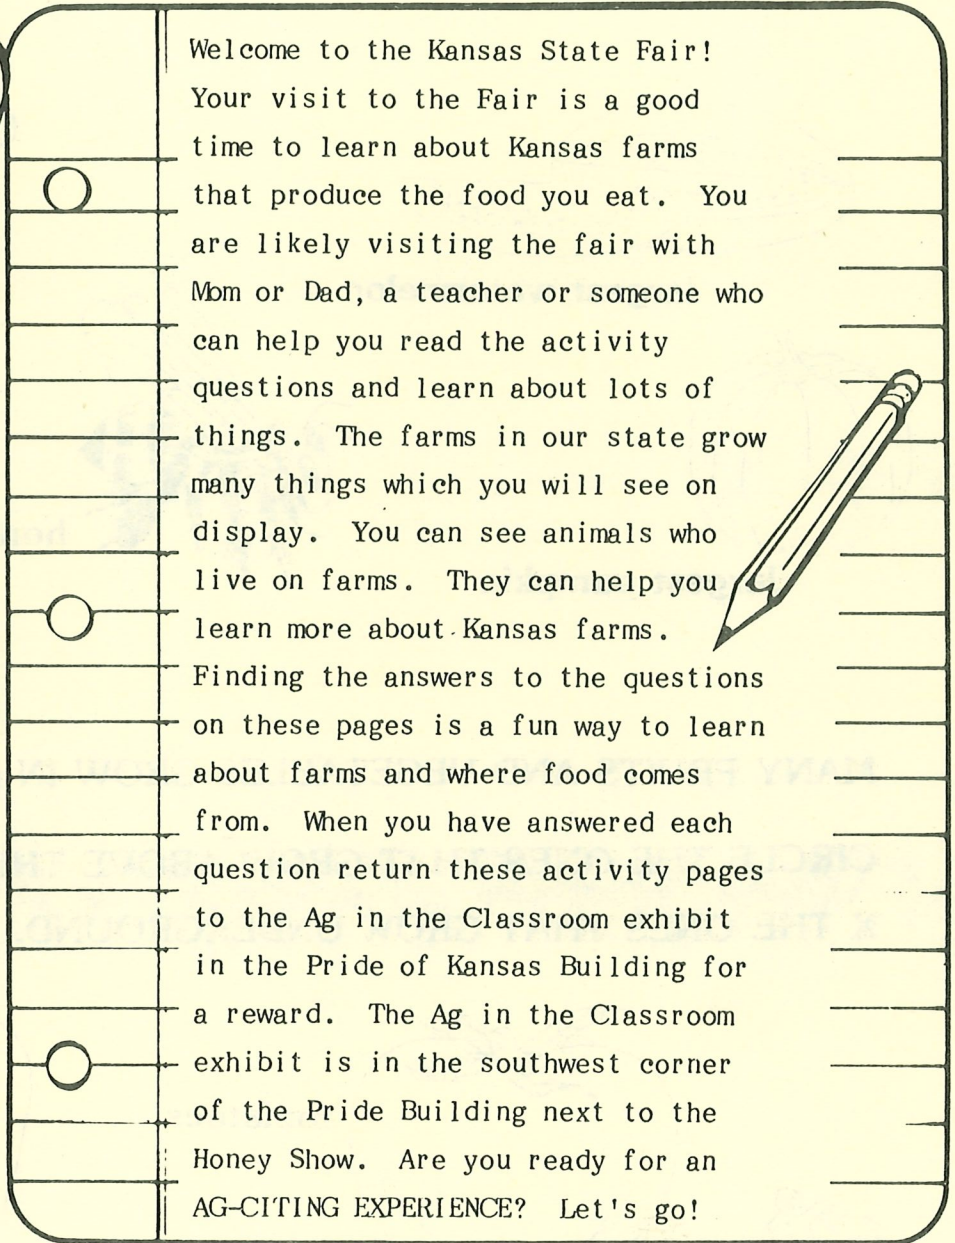 Welcome to the Kansas State Fair!
Your visit to the Fair is a good
time to learn about Kansas farms
that produce the food you eat.  You
are likely visiting the fair with
Mom or Dad, a teacher or someone who
can help you read the activity
questions and learn about lots of
things.  The farms in our state grow
many things which you will see on
display.  You can see animals who
live on farms.  They can help you
learn more about Kansas farms.
Finding the answers to the questions
on these pages is a fun way to learn
about farms and where food comes
from.  When you have answered each
question return these activity pages
to the Ag in the Classroom exhibit
in the Pride of Kansas Building for
a reward.  The Ag in the Classroom
exhibit is in the southwest corner
of the Pride Building next to the
Honey Show.  Are you ready for an
AG-CITING EXPERIENCE?  Let's go!